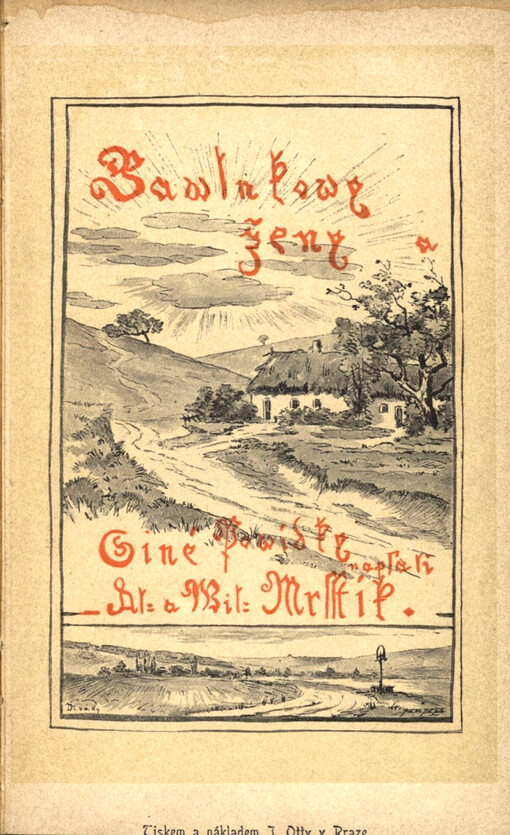 Bawlnkowe
ženy a
Giné Powídky
napsali
Al: a Wil: Mrsstík.
Diváky
Tiskem a nákladem J. Otty v Praze